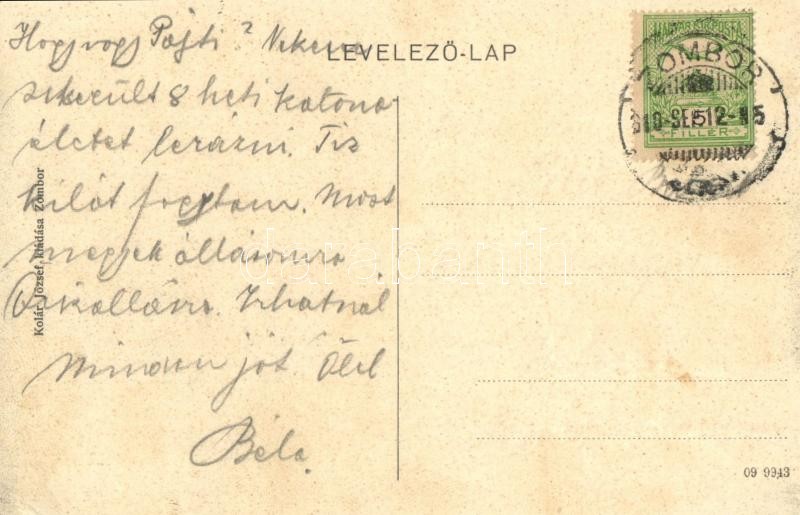 Hogy vagy Pajti? Nekem
LEVELEZŐ-LAP
sikerült 8 heti katona
életet lerázni. Tíz
kilót fogytam. Most
megyek állásomra
Írhatnál
minden jót. Ölel
Béla
Kolár József kiadása Zombor
MAGYAR KIR. POSTA
5
FILLÉR
ZOMBOR
910 SEP 12
09 9943
darabanth